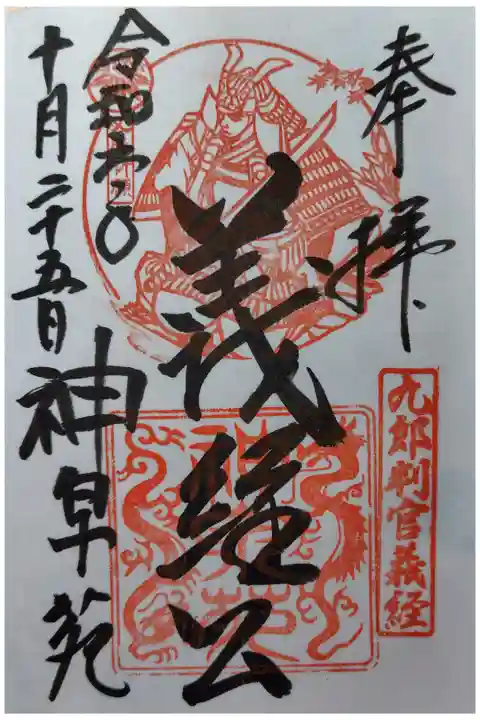 奉拝
九郎判官義経
義経公
令和六年
十月二十五日
神泉苑